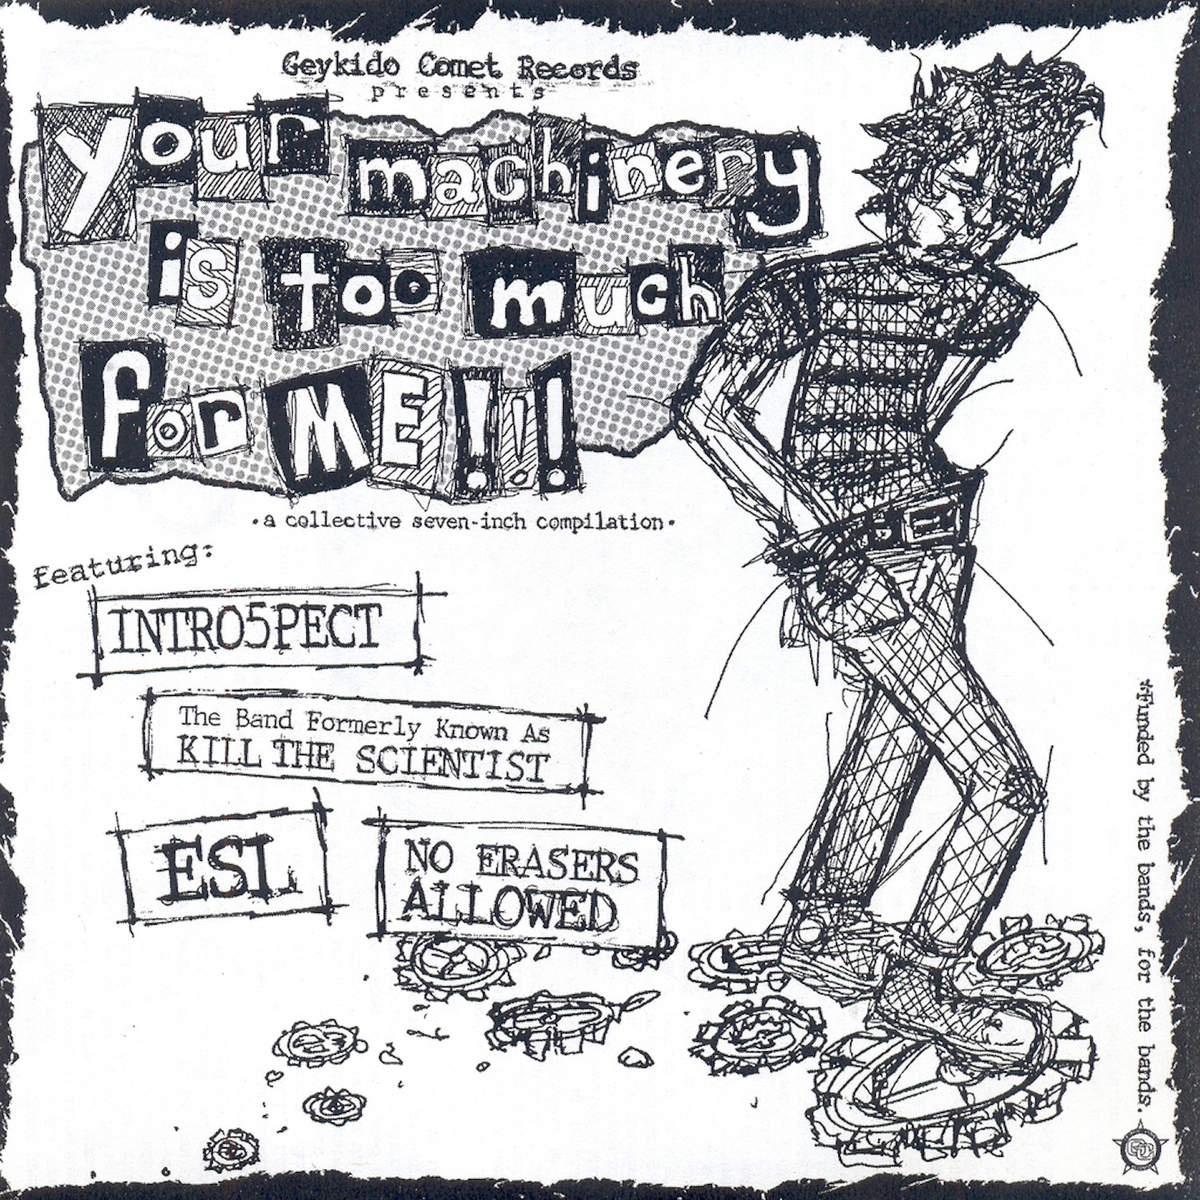 Geykido Comet Records
presents
your machinery
is too much
for ME!!!
·a collective seven-inch compilation·
featuring:
INTRO5PECT
The Band Formerly Known As
KILL THE SCIENTIST
ESL
NO ERASERS
ALLOWED
*Funded by the bands, for the bands.